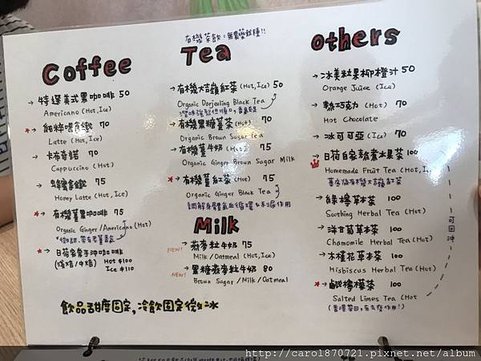 Coffee
特選美式黑咖啡 50
Americano (Hot, Ice)
Latte (Hot, Ice)
卡布奇諾 70
Cappuccino (Hot)
75
Honey Latte (Hot, Ice)
有機薑咖啡 75
Organic Ginger/Americano (Hot)
Hot $100
Ice $110
飲品甜度固定,冷飲固定微冰
Tea
有機大吉嶺紅茶 (Hot, Ice) 50
Organic Darjeeling Black Tea
有機黑糖薑茶 (Hot) 70
Organic Brown Sugar Tea
有機薑牛奶 (Hot) 75
Organic Ginger Brown Sugar Milk
有機薑紅茶 (Hot) 75
Organic Ginger Black Tea
Milk
NEW!
燕麥牛奶 75
Milk/Oatmeal (Hot, Ice)
NEW!
黑糖燕麥牛奶 80
Brown Sugar/Milk/Oatmeal
Others
冰美粒果柳橙汁 50
Orange Juice (Ice)
熱巧克力 (Hot) 70
Hot Chocolate
冰可可亞 (Ice) 70
日荷自家熬煮水果茶 100
Homemade Fruit Tea (Hot, Ice)
100
Soothing Herbal Tea (Hot)
洋甘菊草本茶 100
Chamomile Herbal Tea (Hot)
木槿花草本茶 100
Hisbiscus Herbal Tea (Hot)
鹹檸檬茶 100
Salted Limes Tea (Hot)
可回沖
http://carol870721.pixnet.net/album